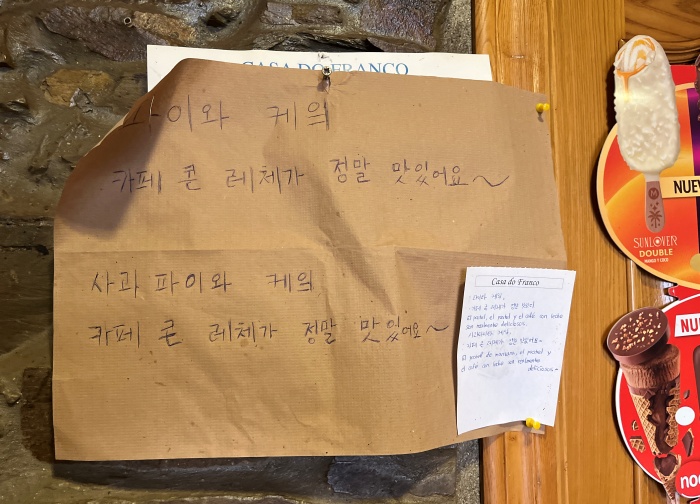 CASA DO FRANCO
파이와 케잌
카페 콘 레체가 정말 맛있어요~
사과 파이와 케잌
카페 콘 레체가 정말 맛있어요~
Casa do Franco
El pastel, el pastel y el café con leche
son realmente deliciosos.
El pastel de manzana, el pastel y
el café con leche son realmente
deliciosos.
NUEV
SUNLOVER
DOUBLE
MANGO Y COCO
NU